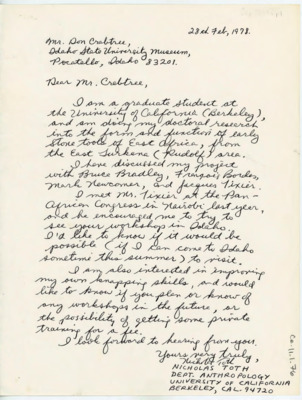 28th Feb, 1978.
Mr. Don Crabtree,
Idaho State University Museum,
Pocatello, Idaho 83201.
Dear Mr. Crabtree,
I am a graduate student at
the University of California (Berkeley),
and am doing my doctoral research
into the form and function of early
stone tools of East Africa, from
the East Turkana (Rudolf) area.
I have discussed my project
with Bruce Bradley, François Bordes,
Mark Newcomer, and Jacques Tixier.
I met Mr. Tixier at the Pan-
African Congress in Nairobi last year,
and he encouraged me to try to
see your workshops in Idaho.
I'd like to know if it would be
possible (if I can come to Idaho
sometime this summer) to visit.
I am also interested in improving
my own knapping skills, and would
like to know if you plan or know of
any workshops in the future, or
the possibility of getting some private
training for a fee.
I look forward to hearing from you.
Yours very truly,
Nicholas Toth
NICHOLAS TOTH
DEPT. ANTHROPOLOGY
UNIVERSITY OF CALIFORNIA
BERKELEY, CAL. 94720